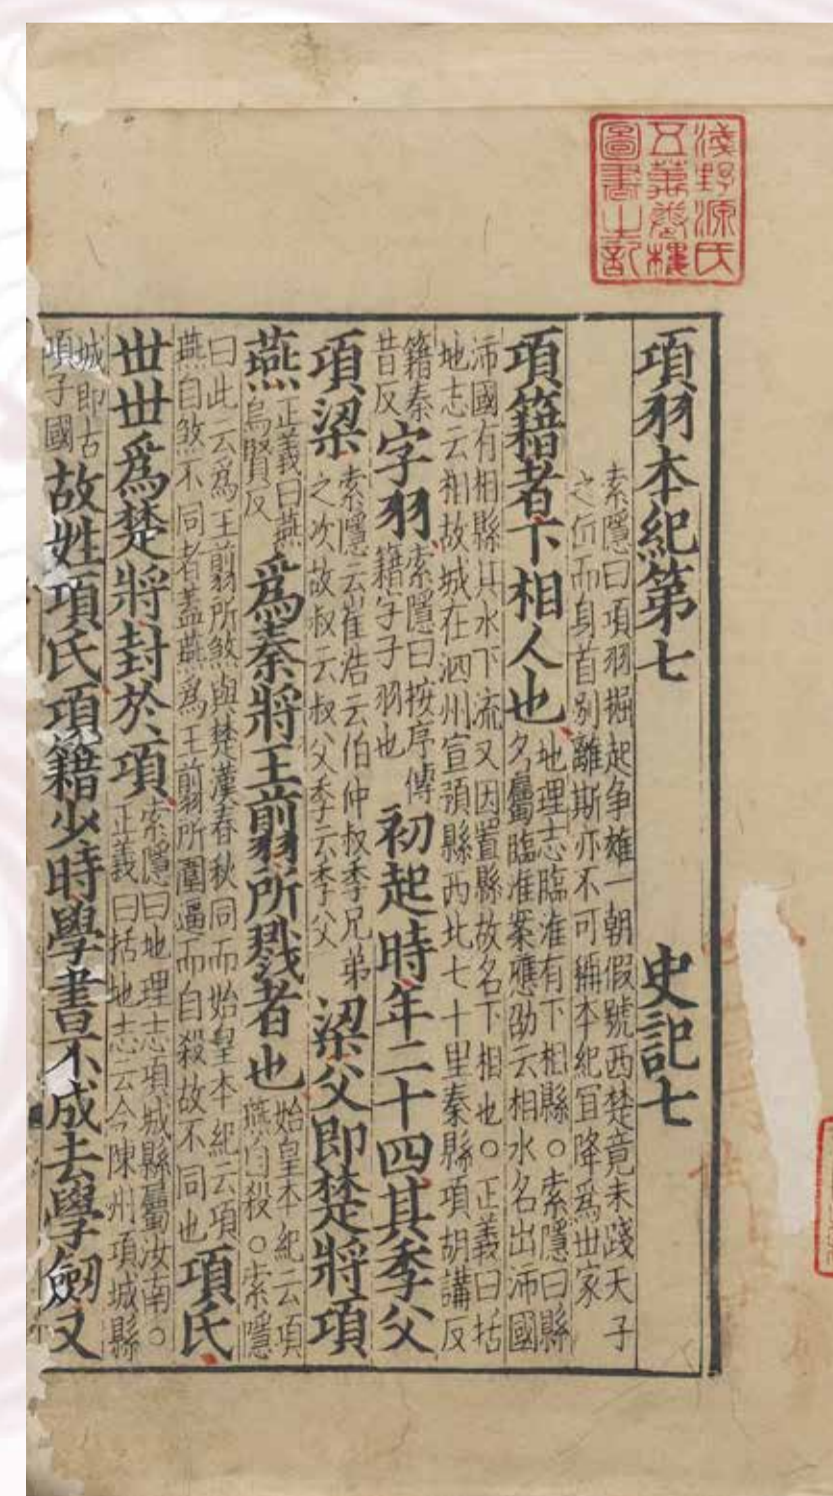 淺野源氏
五萬卷樓
圖書之記
項羽本紀第七 史記七
索隱曰項羽掘起争雄一朝假號西楚竟未踐天子
之位而身首別離斯亦不可稱本紀冝降爲世家
項籍者下相人也
地理志臨淮有下相縣○索隱曰縣
名屬臨淮案應劭云相水名出沛國
沛國有相縣其水下流又因置縣故名下相也○正義曰括
地志云相故城在泗州宣預縣西北七十里秦縣項胡講反
籍秦
昔反
字羽
索隱曰按序傳
籍字子羽也
初起時年二十四其季父
項梁
索隱云崔浩云伯仲叔季兄弟
之次故叔云叔父季云季父
梁父即楚將項
燕
正義曰燕
烏賢反
爲秦將王翦所戮者也
始皇本紀云項
燕自殺○索隱
曰此云爲王翦所煞與楚漢春秋同而始皇本紀云項
燕自煞不同者蓋燕爲王翦所圍逼而自殺故不同也
項氏
世世爲楚將封於項
索隱曰地理志項城縣屬汝南○
正義曰括地志云今陳州項城縣
城即古
項子國
故姓項氏項籍少時學書不成去學劒又